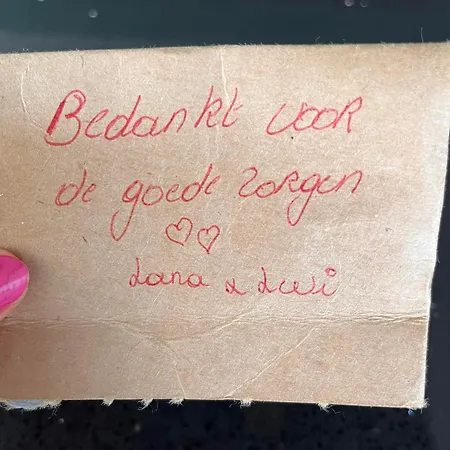 Bedankt voor
de goede zorgen
♡♡
Lana & Luvi